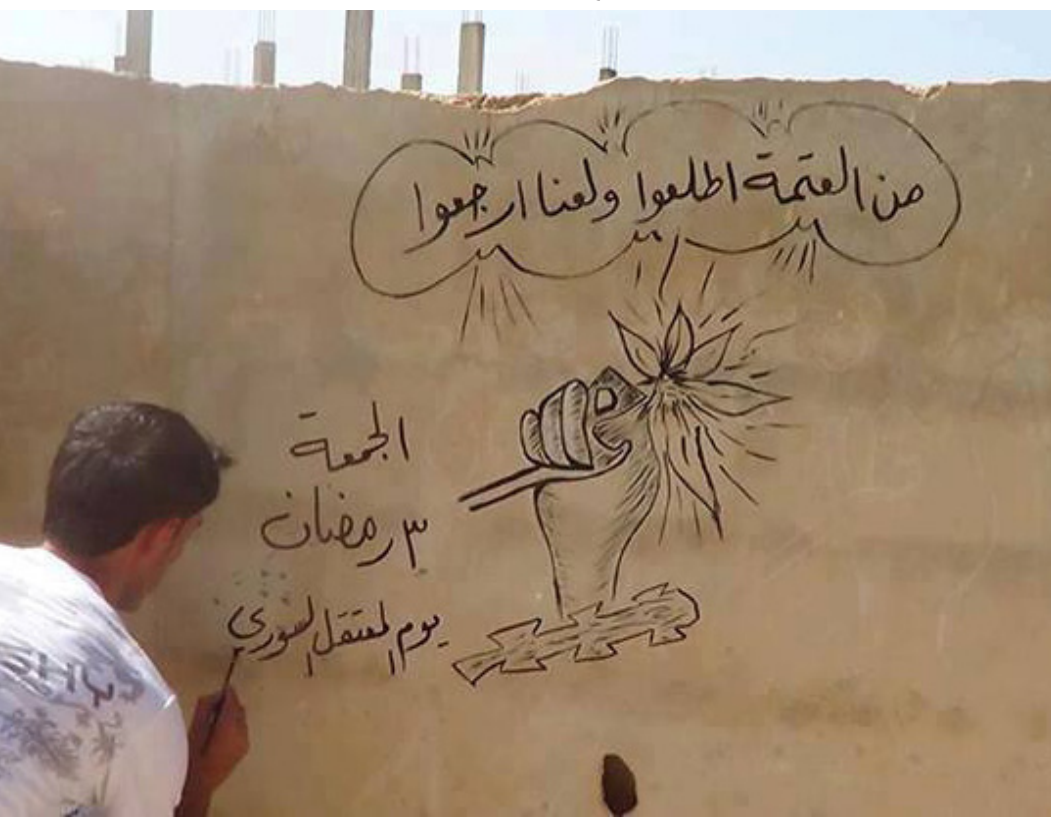 من العتمة اطلعوا ولعنا ارجعوا
الجمعة
٣ رمضان
يوم المعتقل السوري